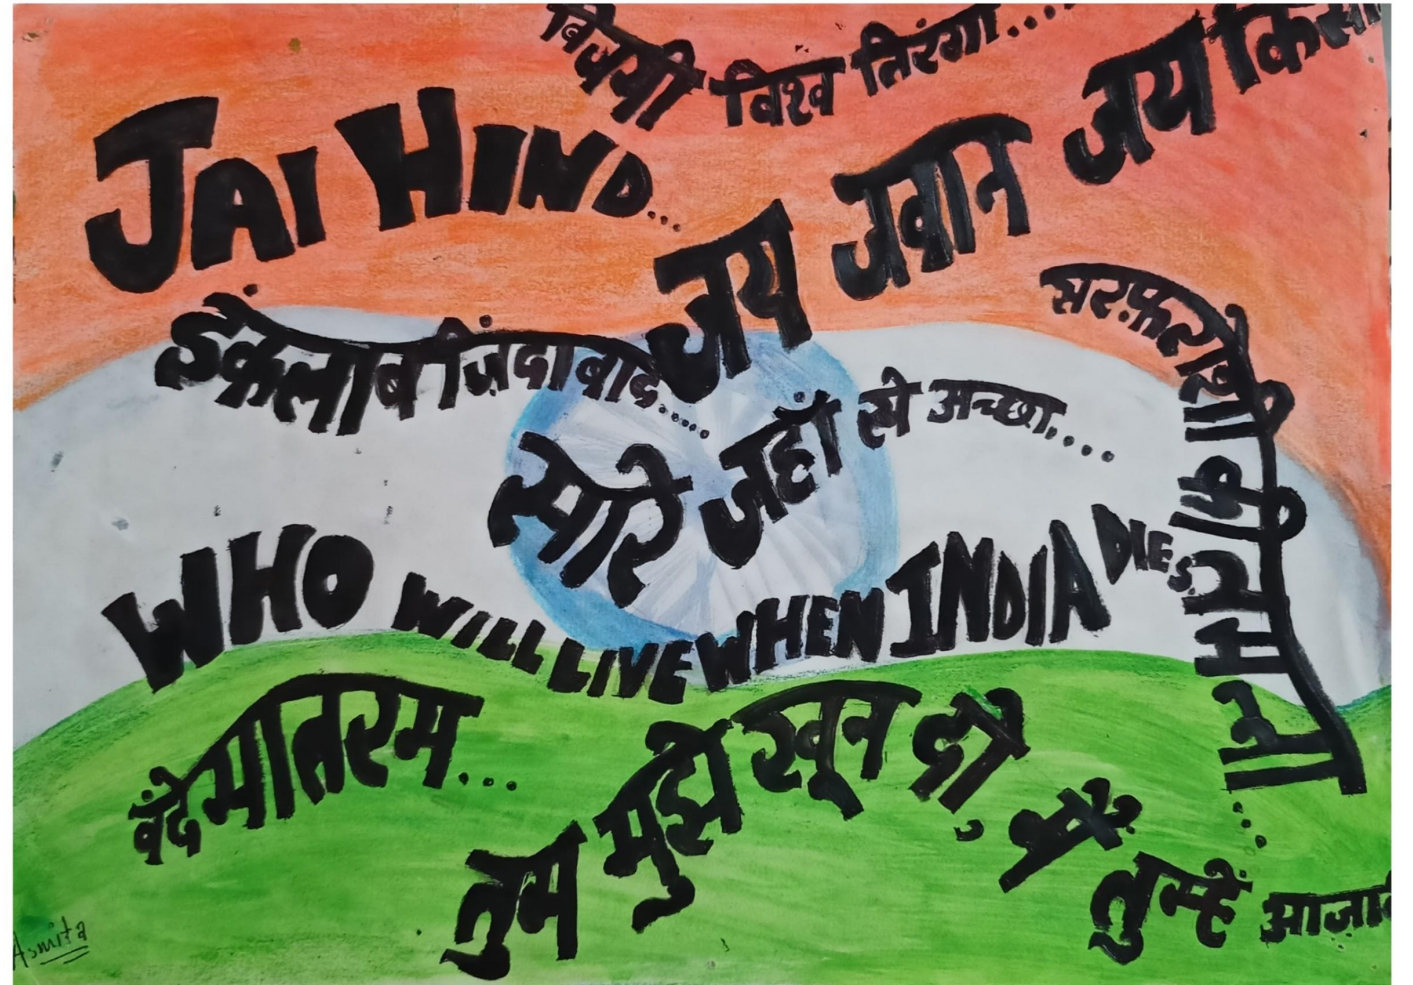 विजयी विश्व तिरंगा....
JAI HIND...
जय जवान जय किसा
इंकलाब ज़िंदाबाद.....
सरफ़रोशी की तमन्ना...
सारे जहाँ से अच्छा....
WHO WILL LIVE WHEN INDIA DIES
वंदे मातरम...
तुम मुझे खून दो, मैं तुम्हें आज़ा
Asmita